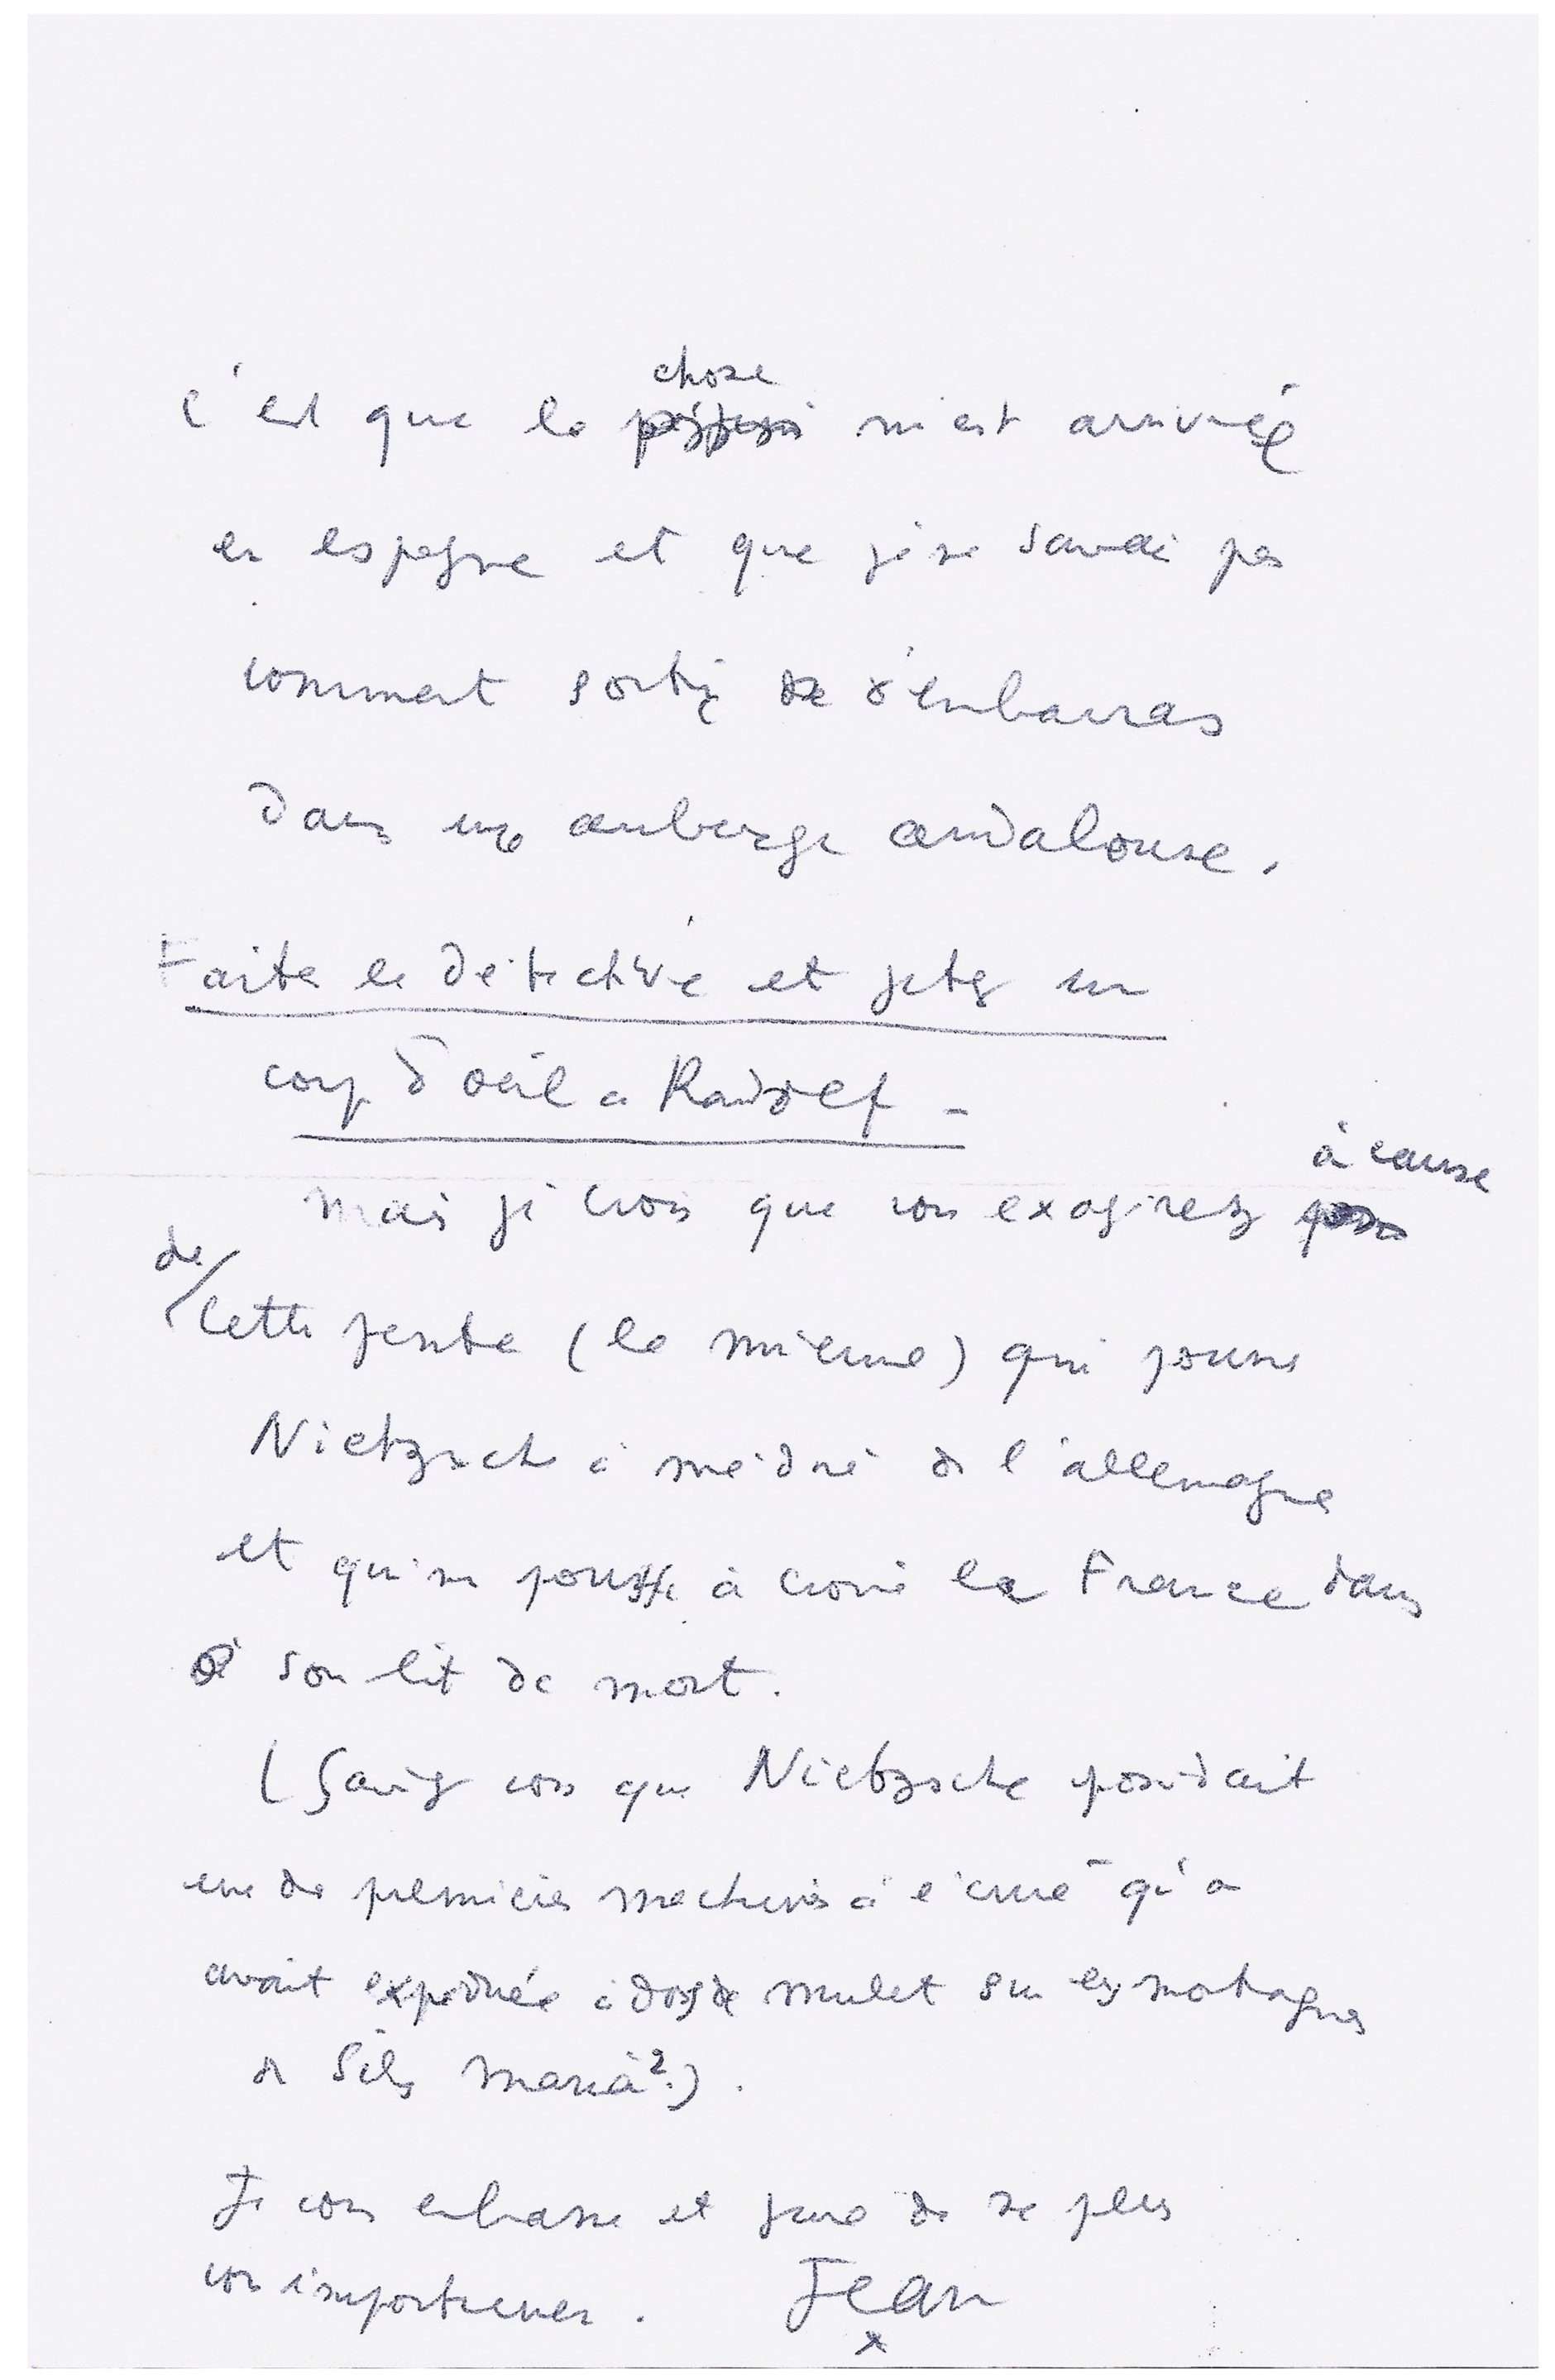 chose
c'est que la m'est arrivée
en espagne et que je ne savais pas
comment sortir de d'embarras
dans une auberge andalouse.
Faites le détective et jetez un
coup d'œil a
à cause
mais je crois que vous exagérez
de
cette pente (la mienne) qui pousse
Nietzsche à médire de l'allemagne
et qui me pousse à croire la France dans
son lit de mort.
(Savez vous que Nietzsche possédait
une des premières machines à écrire qu'on
avait expédiée à dos de mulet sur les montagnes
de Sils Maria?).
Je vous embrasse et jure de ne plus
vous importuner. Jean